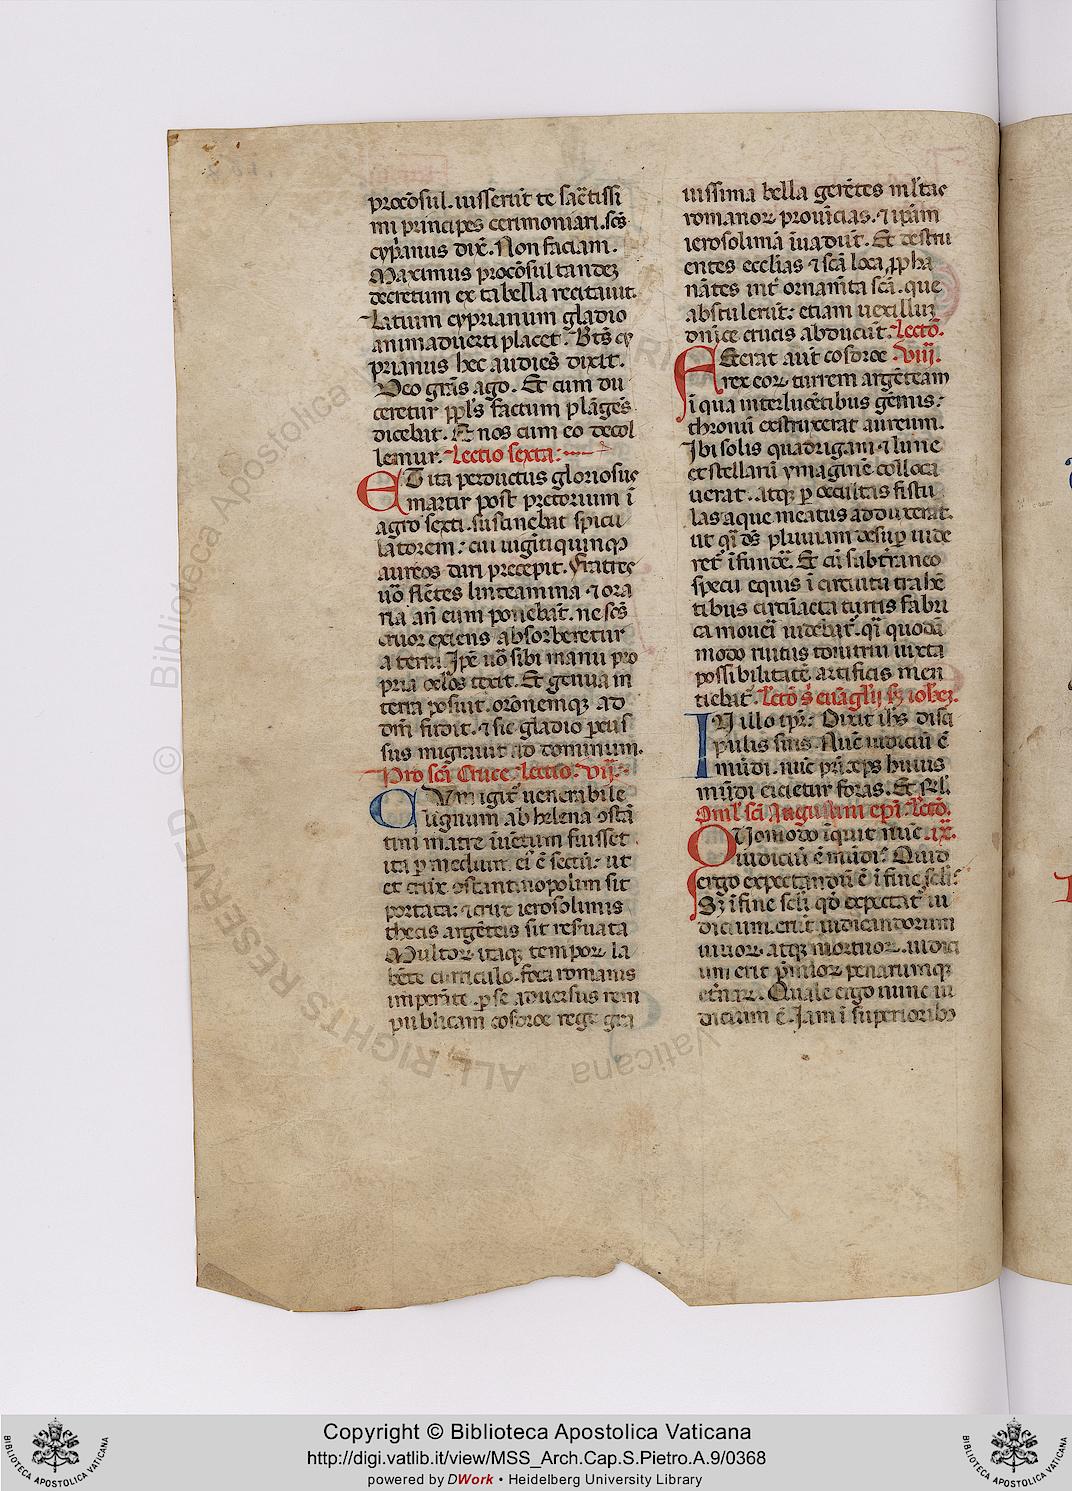 procōsul. iusserūt te sac̄tissi
mi principes cerimoniari. sc̄s
cyp̄anus dix̄. Non faciam.
Maximus procōsul tandez
decretum ex tabella recitauit.
Tatium cyprianum gladio
animaduerti placet. Bt̄s cy
prianus hec audiēs dixit.
Deo grās ago. Et cum du
ceretur ppl̄s factum plāgēs
dicebat. Et nos cum eo decol
lemur. Lectio sexta:
ET ita perductus gloriosus
martir post pretorium ī
agro sexti. sustinebat spicu
latorem: cui uigīti quinq3
aureos dari precepit. Fratres
uō flētes linteamina ⁊ ora
ria an̄ eum ponebāt. ne sc̄s
cruor exiens absorberetur
a terra. Ip̄e uō sibi manu pro
pria oclōs texit. Et genua in
terra posuit. orōnemq3 ad
dm̄ fudit. ⁊ sic gladio pcus
sus migrauit ad dominum.
Pro scā Cruce. Lectio. vij.
CVm igit̄ uenerabile
lignum ab helena ostā
tini matre īuētum fuisset
ita p medium ei ē sectū: ut
et crux ostantinopolim sit
portata: ⁊ crux ierosolimis
thecis argēteis sit resuata
Multor itaq3 tempor la
bēte curriculo. foca romanis
imperāte. p se aduersus rem
publicam cosdroe rege gra
uissima bella gerētes ml̄tas
romanor prouīcias. ⁊ ipām
ierosolimā īuadūt. Et destru
entes ecclias ⁊ scā loca ppha
nātes int̄ ornamīta scā. que
abstulerūt: etiam uexillūz
dn̄ice crucis abducūt. Lectō.
FEcerat aut̄ cosdroe viij.
rex eor turrem argēteam
ī qua interlucētibus gēmis:
thronū exstruxerat aureum.
Ibi solis quadrigam ⁊ lune
et stellarū ymaginē colloca
uerat. atq3 p occultas fistu
las aque meatus adduxerat.
ut q̄i ds̄ pluuiam desup uide
ret̄ īfundē. Et cū subt̄raneo
specu equis ī circuitu trahē
tibus circūacta turris fabri
ca moueri uidebat̄. q̄i quodā
modo rutus tonitrui iuxta
possibilitatē artificis men
tiebat̄. Lectō s. euāglij s3 ioħez.
IN illo tpr̄: Dixit ih̄s disci
pulis suis. Nūc iudiciū ē
mūdi. nūc prīceps huius
mūdi eicietur foras. Et rel̄.
Omīl scī Augustini epī. Lectō.
QUomodo īquit nūc ix.
iudiciū ē mūdi. Quid
ergo expectandū ē ī fine scl̄i.
S3 ī fine scl̄i qō expectat̄ iu
dicium. erit iudicandorum
uiuor. atq3 mortuor. iudici
um erit p̄mior penarumq3
et̄nar. Quale ergo nunc iu
dicium ē. Jam ī superiorib3
© Biblioteca Apostolica Vaticana
ALL RIGHTS RESERVED
Copyright © Biblioteca Apostolica Vaticana
http://digi.vatlib.it/view/MSS_Arch.Cap.S.Pietro.A.9/0368
powered by DWork • Heidelberg University Library
BIBLIOTECA APOSTOLICA VATICANA
BIBLIOTECA APOSTOLICA VATICANA